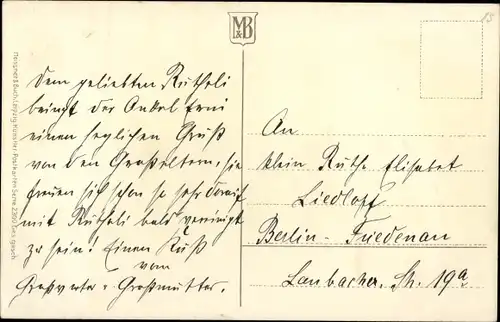 M&B
15
Dem geliebten Rutheli
bringt der Onkel Erni
einen herzlichen Gruß
von den Großeltern, sie
freuen sich schon so sehr darauf
mit Rutheli bald vereinigt
zu sein! Einen Kuß
vom
Großvater u. Großmutter.
An
klein Ruthe Elisabet
Liedloff
Berlin-Friedenau
Laubacher. Str. 19a
Meissner & Buch, Leipzig Künstler-Postkarten Serie